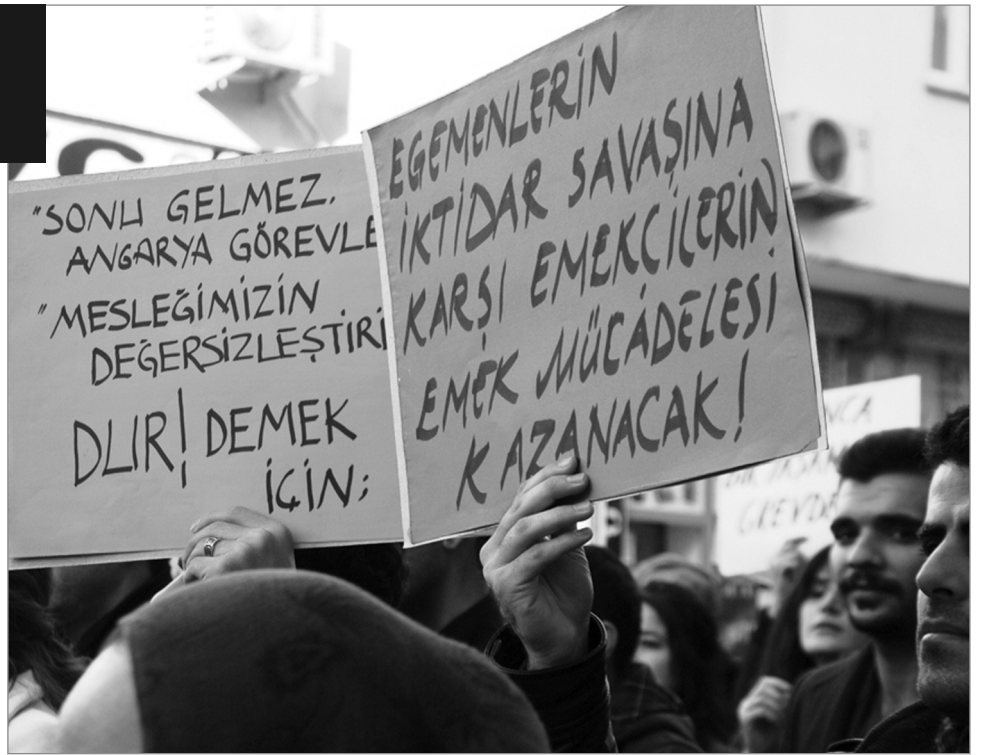 "SONU GELMEZ.
ANGARYA GÖREVLE
"MESLEĞİMİZİN
DEĞERSİZLEŞTİRİ
DUR! DEMEK
İÇİN;
EGEMENLERİN
İKTİDAR SAVAŞINA
KARŞI EMEKÇİLERİN
EMEK MÜCADELESİ
KAZANACAK!
GREVDE